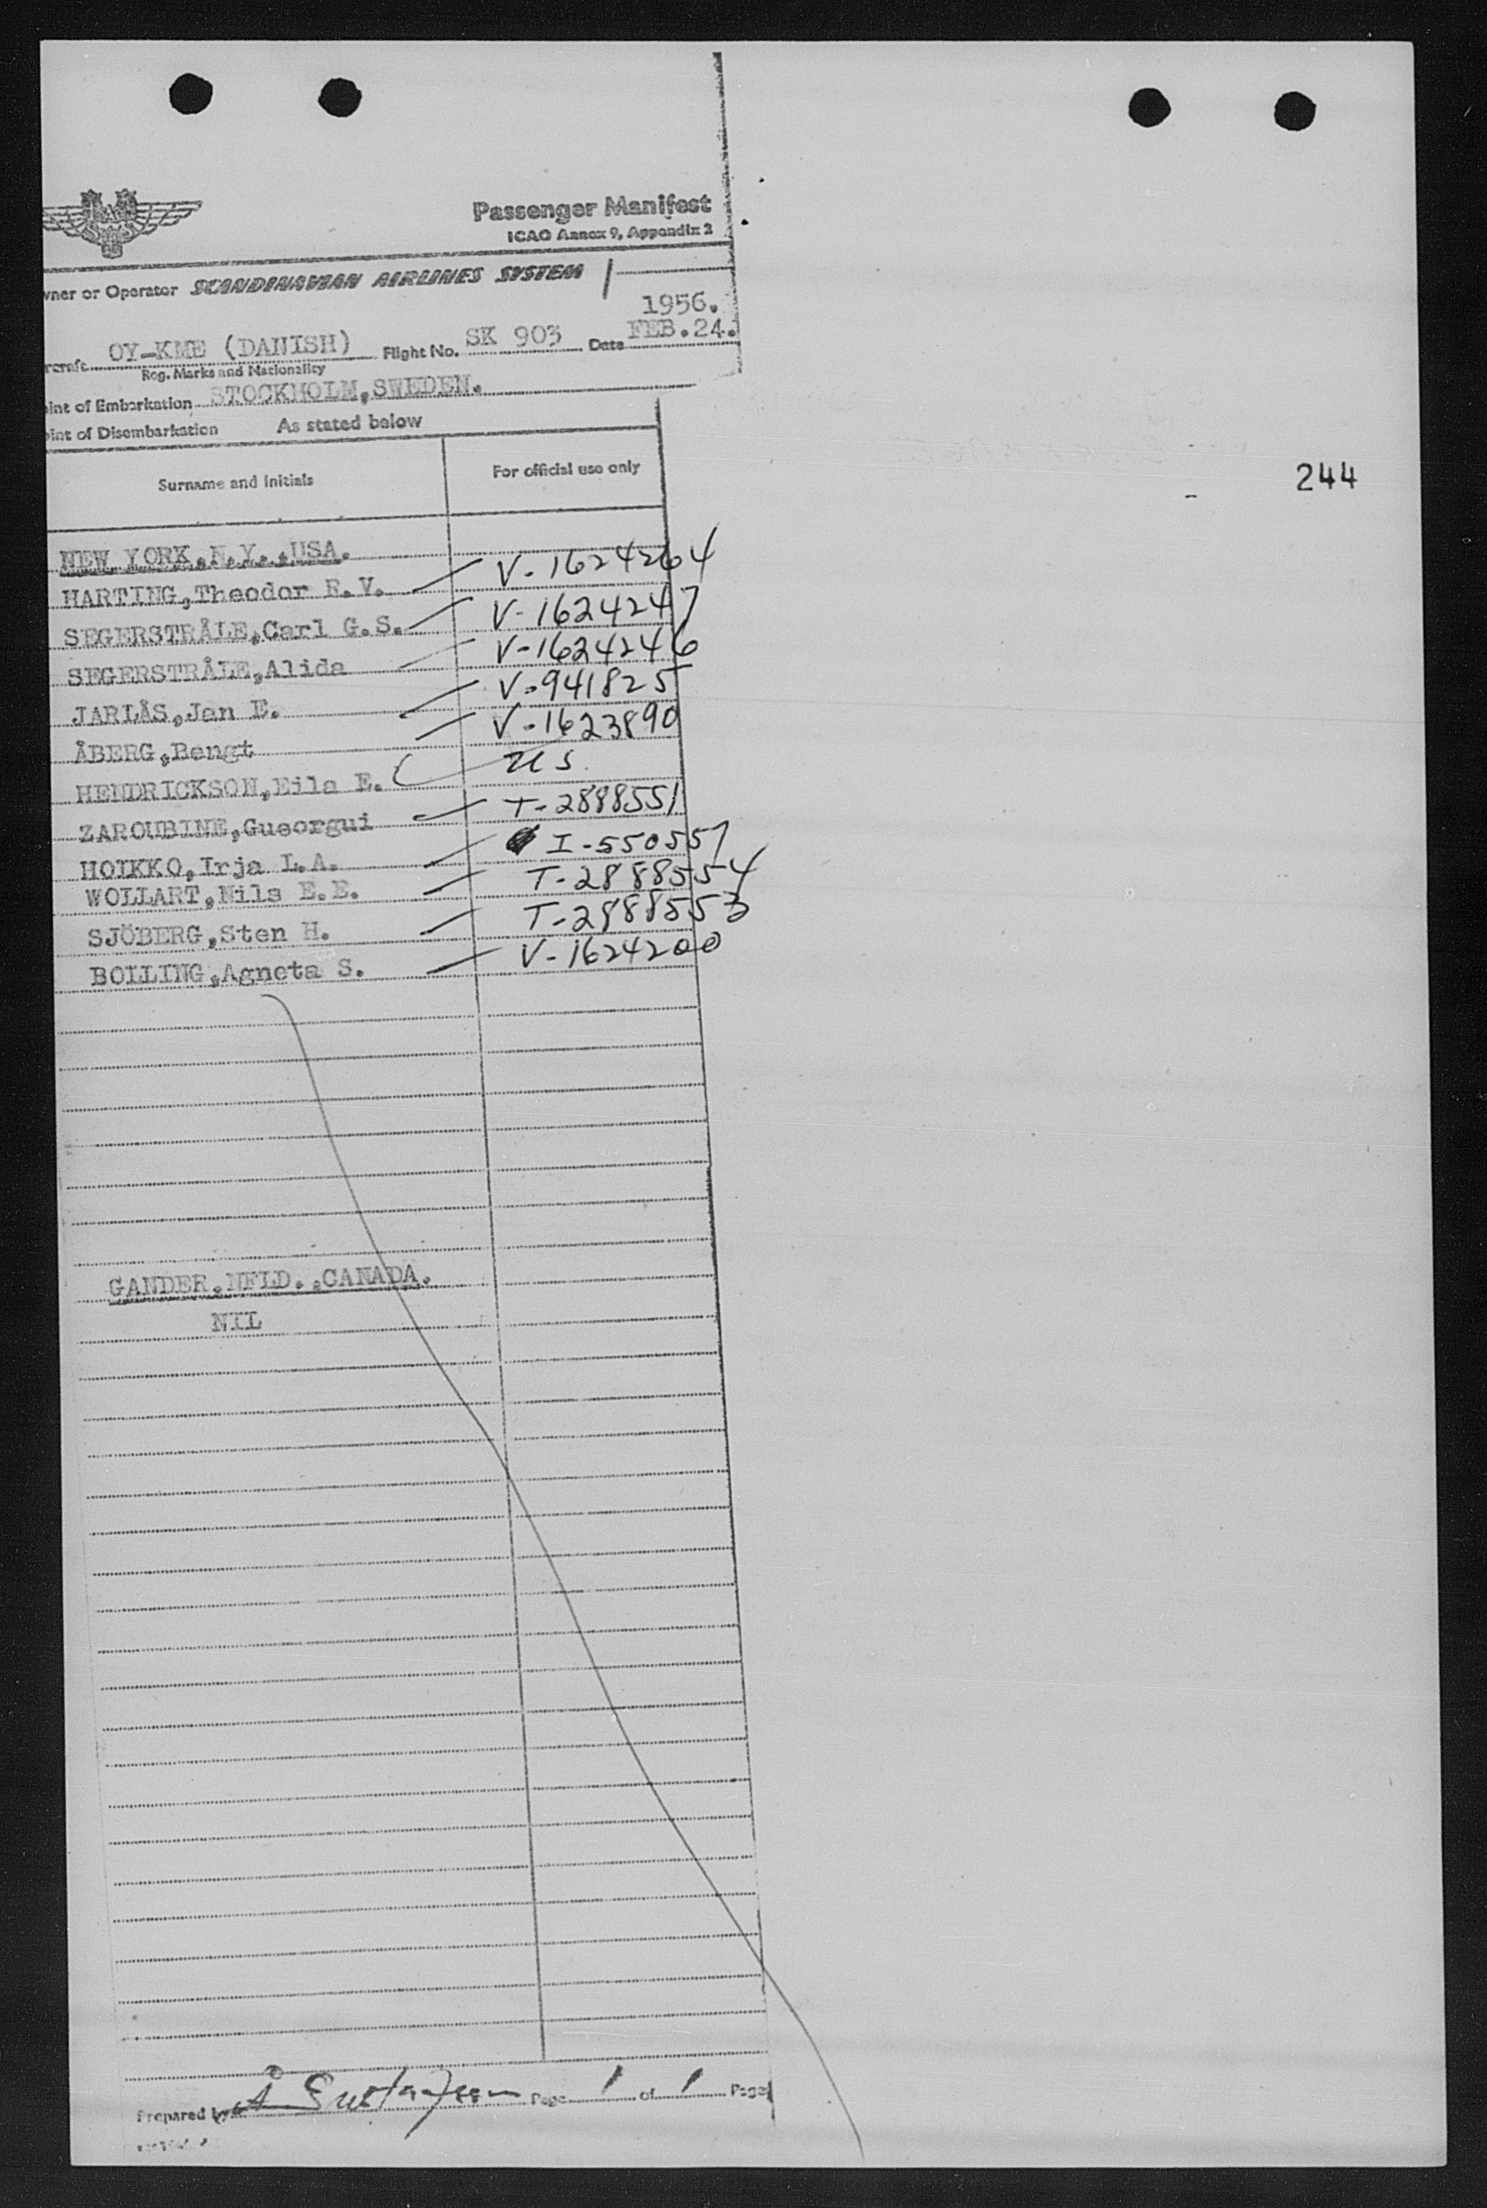 Passenger Manifest
ICAO Annex 9, Appendix 2
wner or Operator SCANDINAVIAN AIRLINES SYSTEM
1956.
rcraft OY-KME (DANISH) Flight No. SK 903 Date FEB.24.
Reg. Marks and Nationality
oint of Embarkation STOCKHOLM,SWEDEN.
oint of Disembarkation As stated below
Surname and Initials For official use only
244
NEW YORK,N.Y.,USA.
HARTING,Theodor E.V. V-1624264
SEGERSTRÅLE,Carl G.S. V-1624247
SEGERSTRÅLE,Alida V-1624246
JARLÅS,Jan E. V-941825
ÅBERG,Bengt V-1623890
HENDRICKSON,Eila E. US.
ZAROUBINE,Gueorgui T-2888551
HOIKKO,Irja L.A. I-550557
WOLLART,Nils E.E. T-2888554
SJÖBERG,Sten H. T-2888553
BOLLING,Agneta S. V-1624200
GANDER,NFLD.,CANADA.
NIL
Prepared by Å Gustafsson Page 1 of 1 Pages